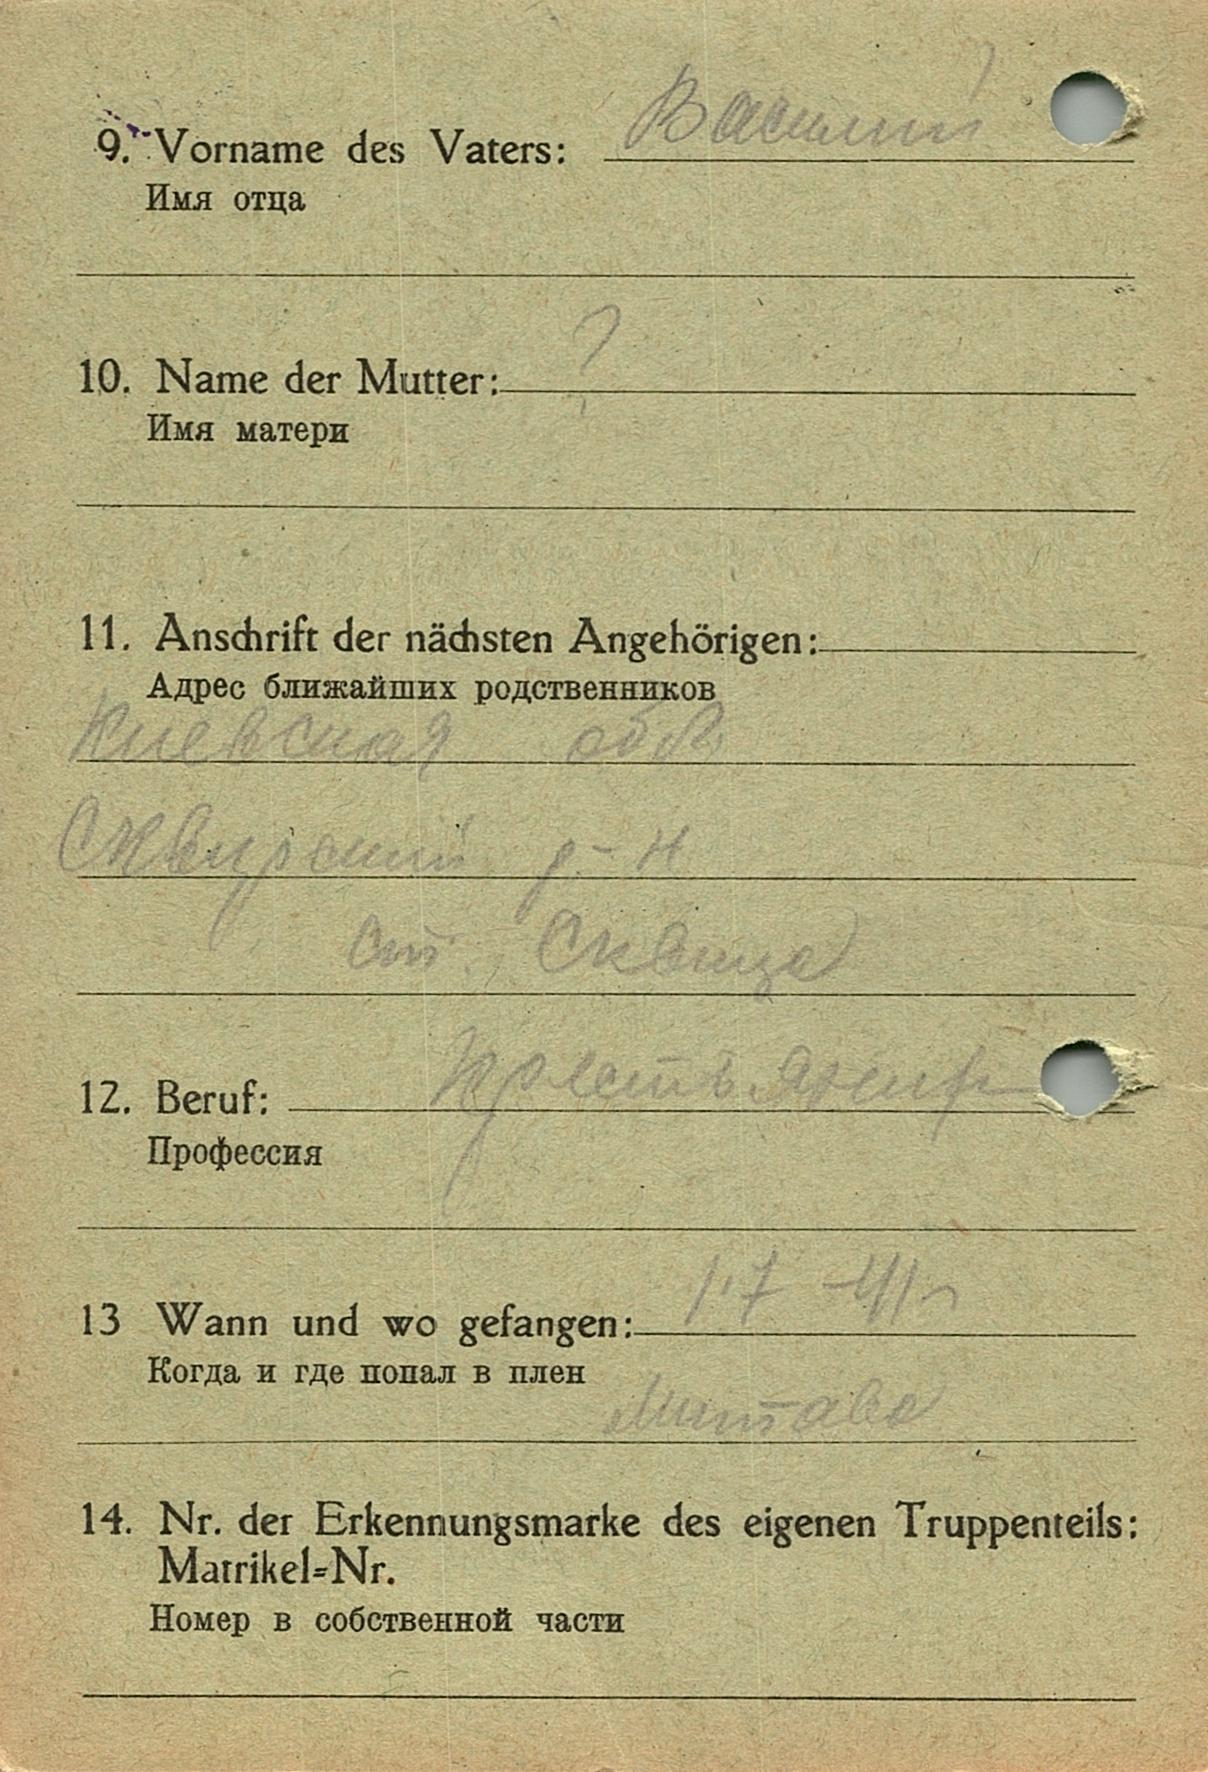 9. Vorname des Vaters: Василий
Имя отца
10. Name der Mutter: ?
Имя матери
11. Anschrift der nächsten Angehörigen:
Адрес ближайших родственников
Киевская обл
Сквирский р-н
ст.
12. Beruf:
Профессия
13 Wann und wo gefangen: 1.7 -41г
Когда и где попал в плен
Митава
14. Nr. der Erkennungsmarke des eigenen Truppenteils:
Matrikel=Nr.
Номер в собственной части